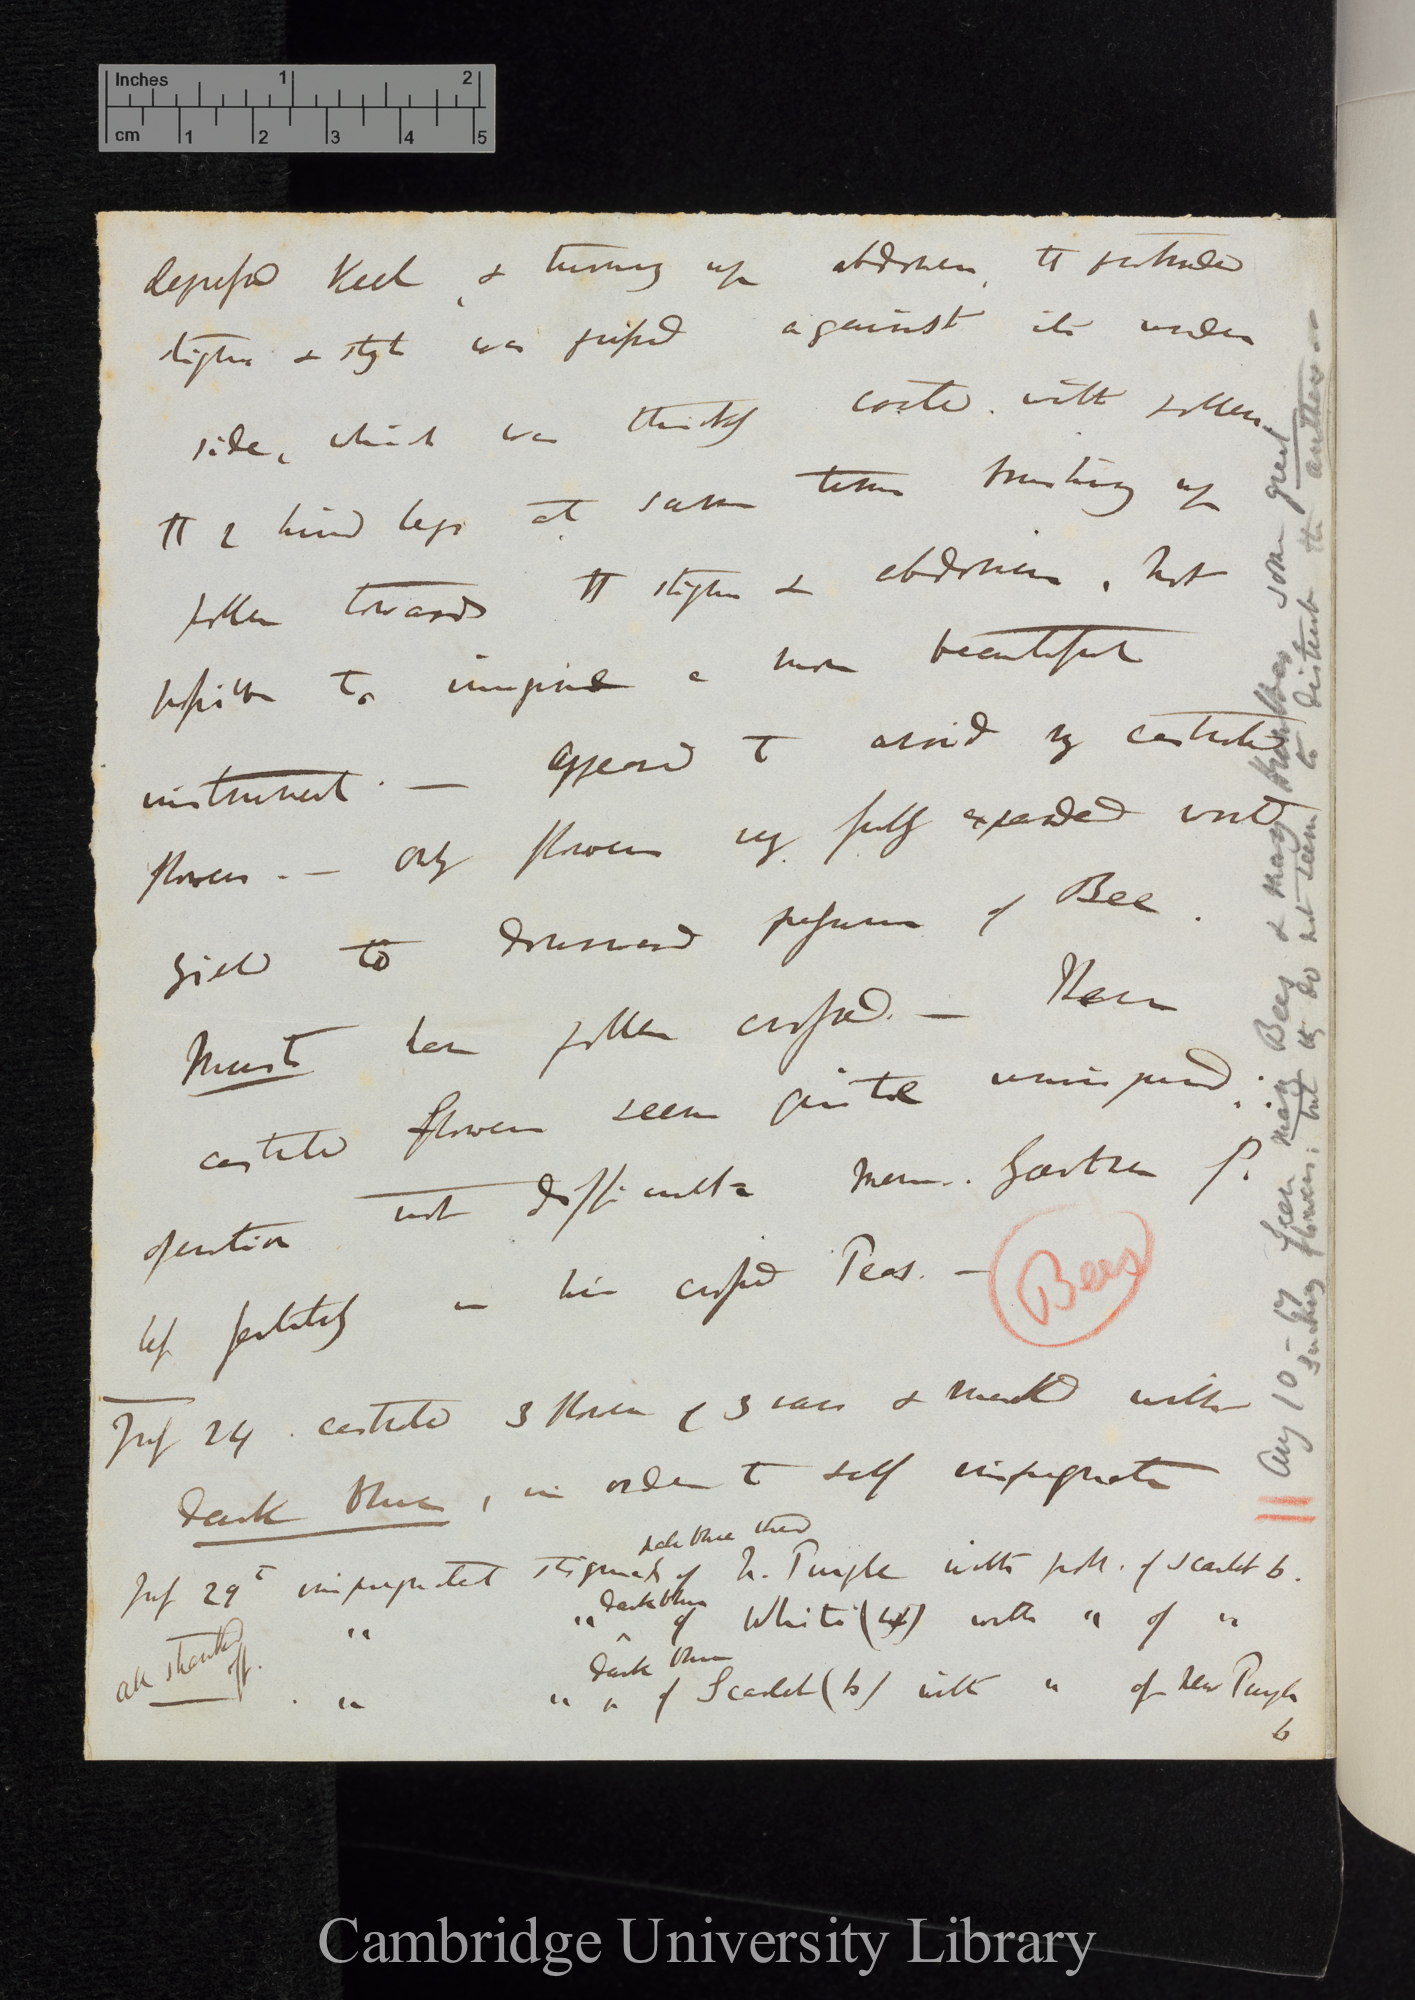 Inches 1 2
cm 1 2 3 4 5
depressed Keel, & turning up abdomen, the protruded
stigma & style was pressed against its under
side, which was thickly coated with pollen,
the 2 hind legs at same time brushing up
pollen towards the stigma & abdomen. Not
possible to imagine a more beautiful
instrument. — appeared to avoid my castrated
flowers. — only flowers fully expanded would
yield to downward pressure of Bee.
Must have pollen crossed. — These
castrated flowers seem quite uninjured;
operation not difficult. Mem. Gærtner f.
less fertility in his crossed Peas. —
Bees
July 24. castrated 3 flowers of 3 vars & marked with
dark blue, in order to self impregnate
pale blue thread
July 29th impregnated stigmas of N. Purple with poll. of Scarlet b.
dark blue
" " of White (4) with " of "
dark blue
" " " of Scarlet (b) with " of New Purple
b
all shanked
off.
Aug 10 – 67 Seen many Bees & many Humbles some great
sucking flowers; but they do not seem to disturb the anthers. —
Cambridge University Library